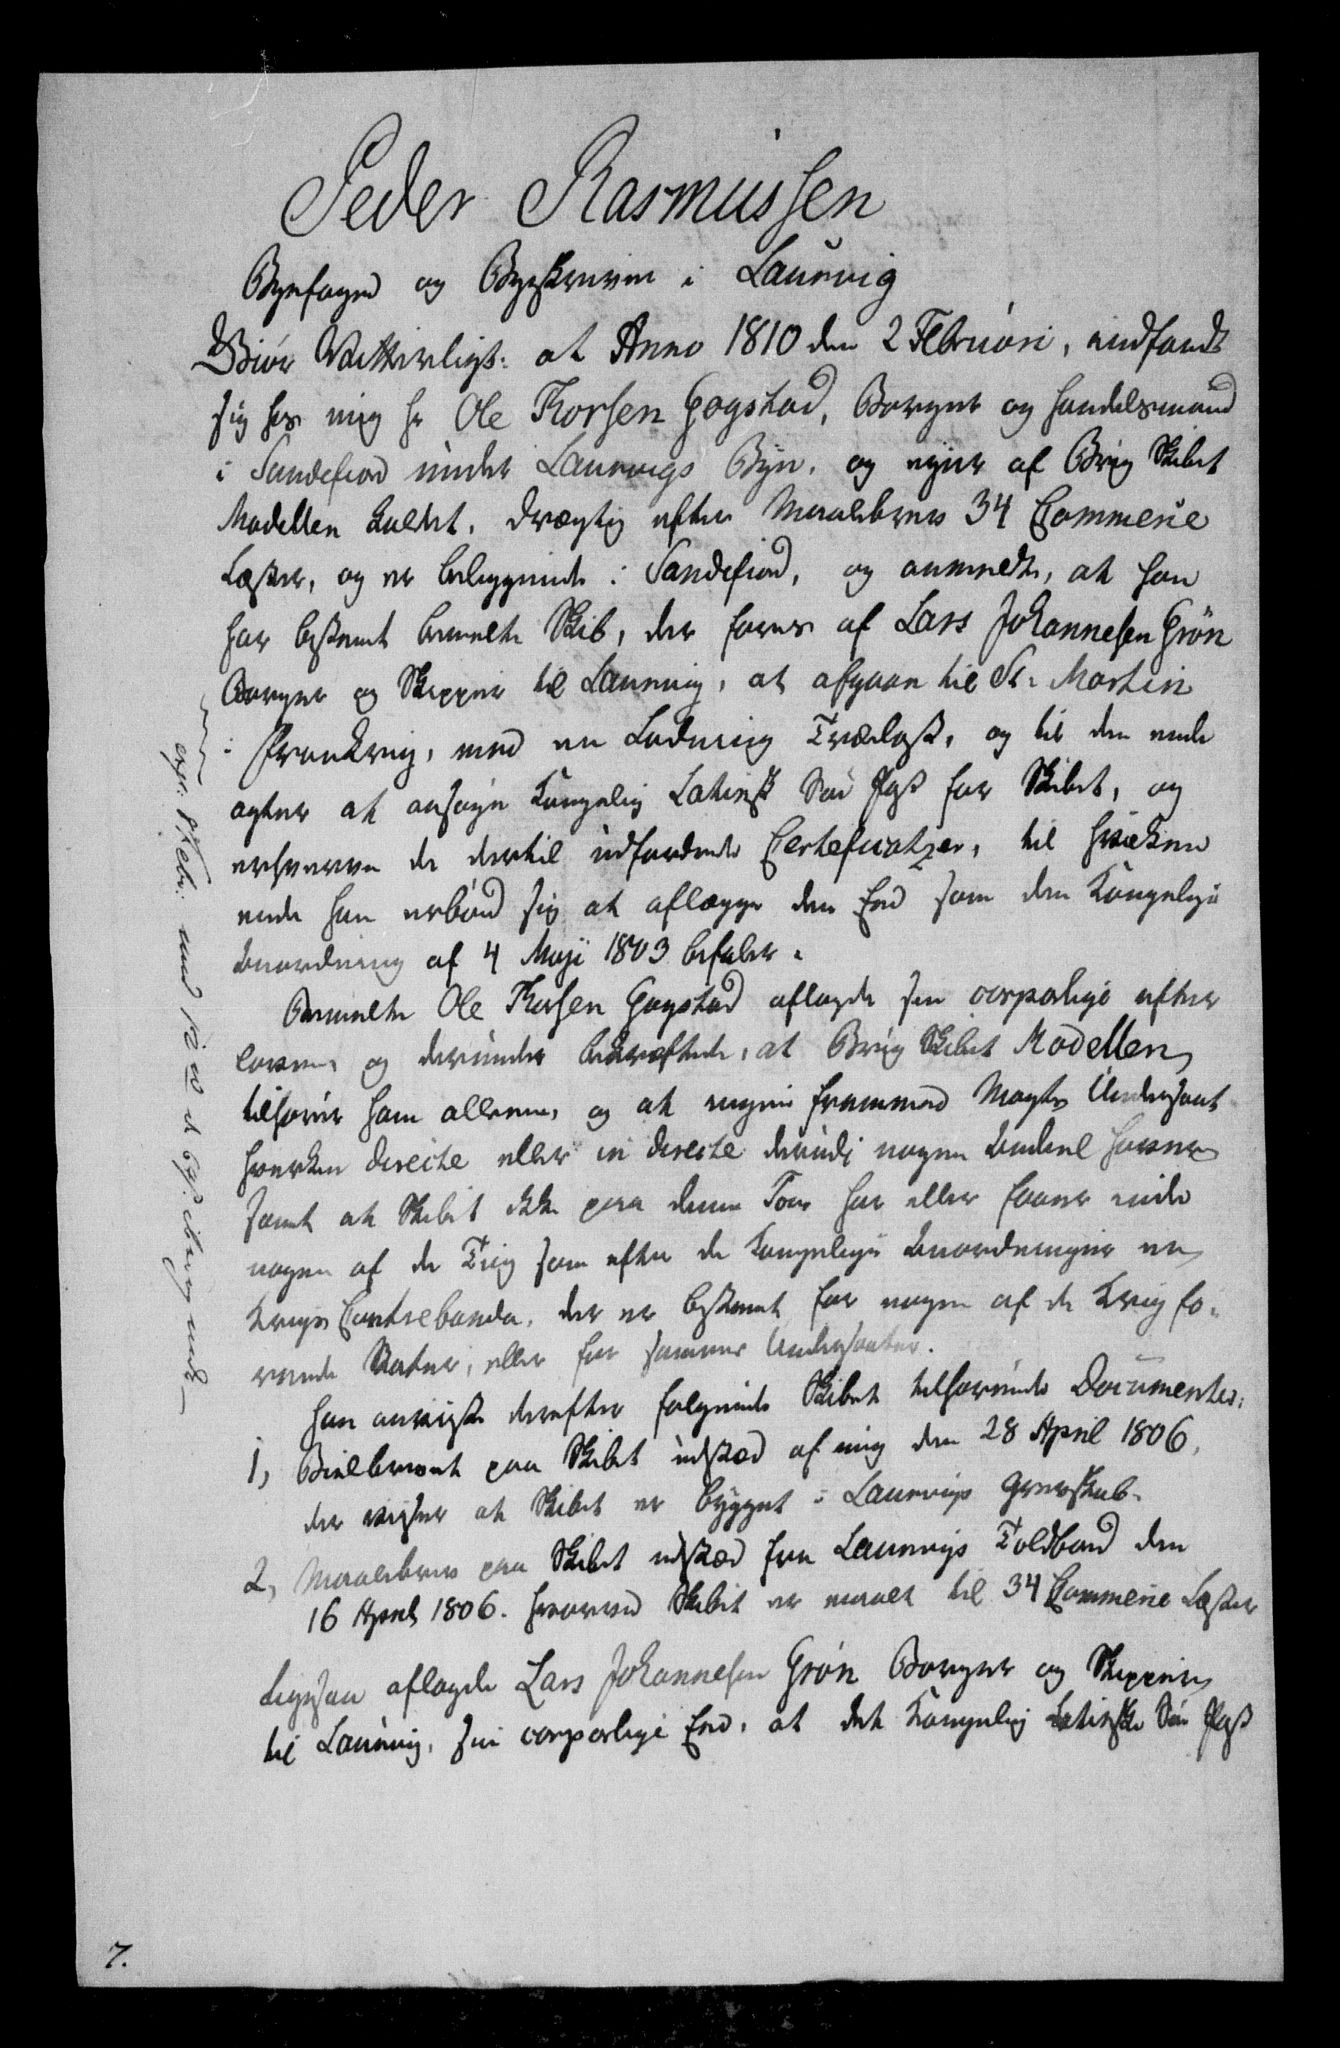 Peder Rasmussen
Byefoged og Byeskriver i Laurvig
Giør Vitterligt: at Anno 1810 den 2 Februari, indfandt
sig for mig hr Ole Thorsen Gogstad, Borger og Handelsmand
i Sandefiord under Laurvigs Bye, og ejer af Brig Skibet
Modellen kaldet, drægtig efter Maalebrev 34 Commerce
Læster, og er beliggende i Sandefiord, og anmeldte, at han
har bestemt bemelte Skib, der føres af Lars Johannesen Grøn
Borger og Skipper til Laurvig, at afgaae til St: Martin
i Frankrig, med en Ladning Trælast, og til den ende
agter at ansøge Kongelig Latinsk Søe Pass for Skibet, og
erhverve de dertil udfordrende Certeficatzer, til hvilken
ende han erbød sig at aflægge den Eed som den Kongelige
Anordning af 4 Maji 1803 befaler.
Bemelte Ole Thorsen Gogstad aflagde sin corporlige efter
loven, og derunder bekræftede, at Brig Skibet Modellen
tilhører ham alleene, og at ingen fremmed Magts Undersaat
hverken directe eller in directe derudi nogen Andeel haver
samt at Skibet ikke paa denne Tour har eller faaer inde
nogen af de Ting som efter de Kongelige Anordninger er
Krigs Contrebande, der er bestemt for nogen af de Krig fø-
rende Stater, eller for sammes Undersaatter.
Han anviiste derefter følgende Skibet tilhørende Documenter:
1, Biilbrevet paa Skibet udstæd af mig den 28 April 1806,
der viser at Skibet er bygget i Laurvigs Grevskab.
2, Maalebrev paa Skibet udstæd fra Laurvigs Toldbod den
16 April 1806. hvorved Skibet er maalt til 34 Commerce Læster
Ligesaa aflagde Lars Johannesen Grøn Borger og Skipper
til Laurvig, sin corporlige Eed, at det Kongelig Latinske Søe Pass
7.